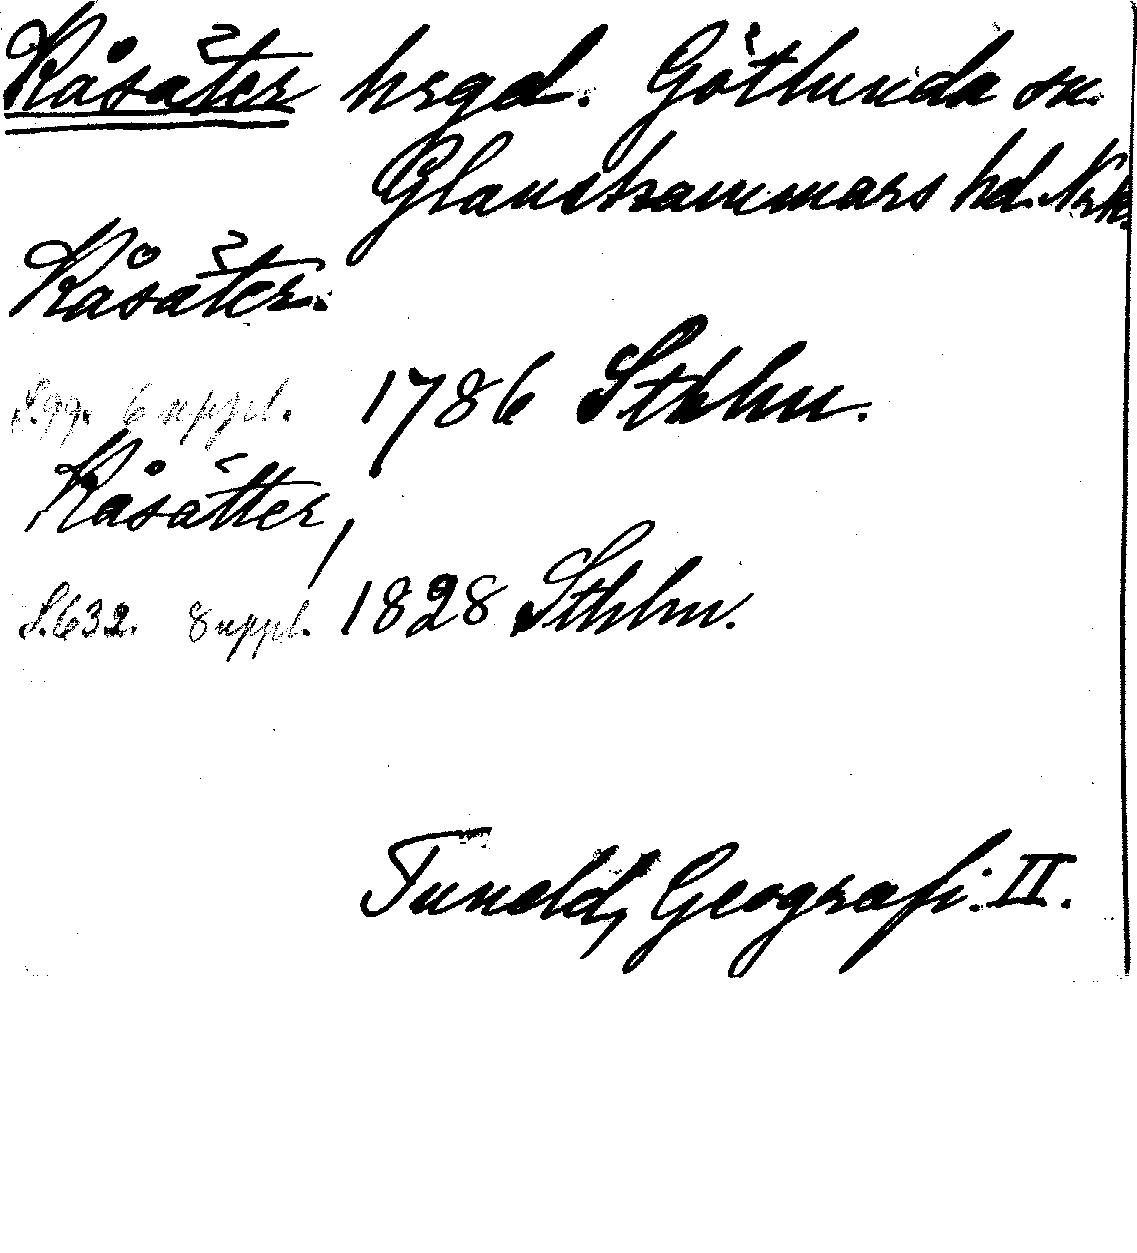 Kåsäter hrgd. Götlunda sn.
Glanshammars hd. Nrk.
Kåsäter.
S. 99. 6 uppl. 1786 Sthlm.
Kåsätter,
S. 632. 8 uppl. 1828 Sthlm.
Tuneld, Geografi. II.